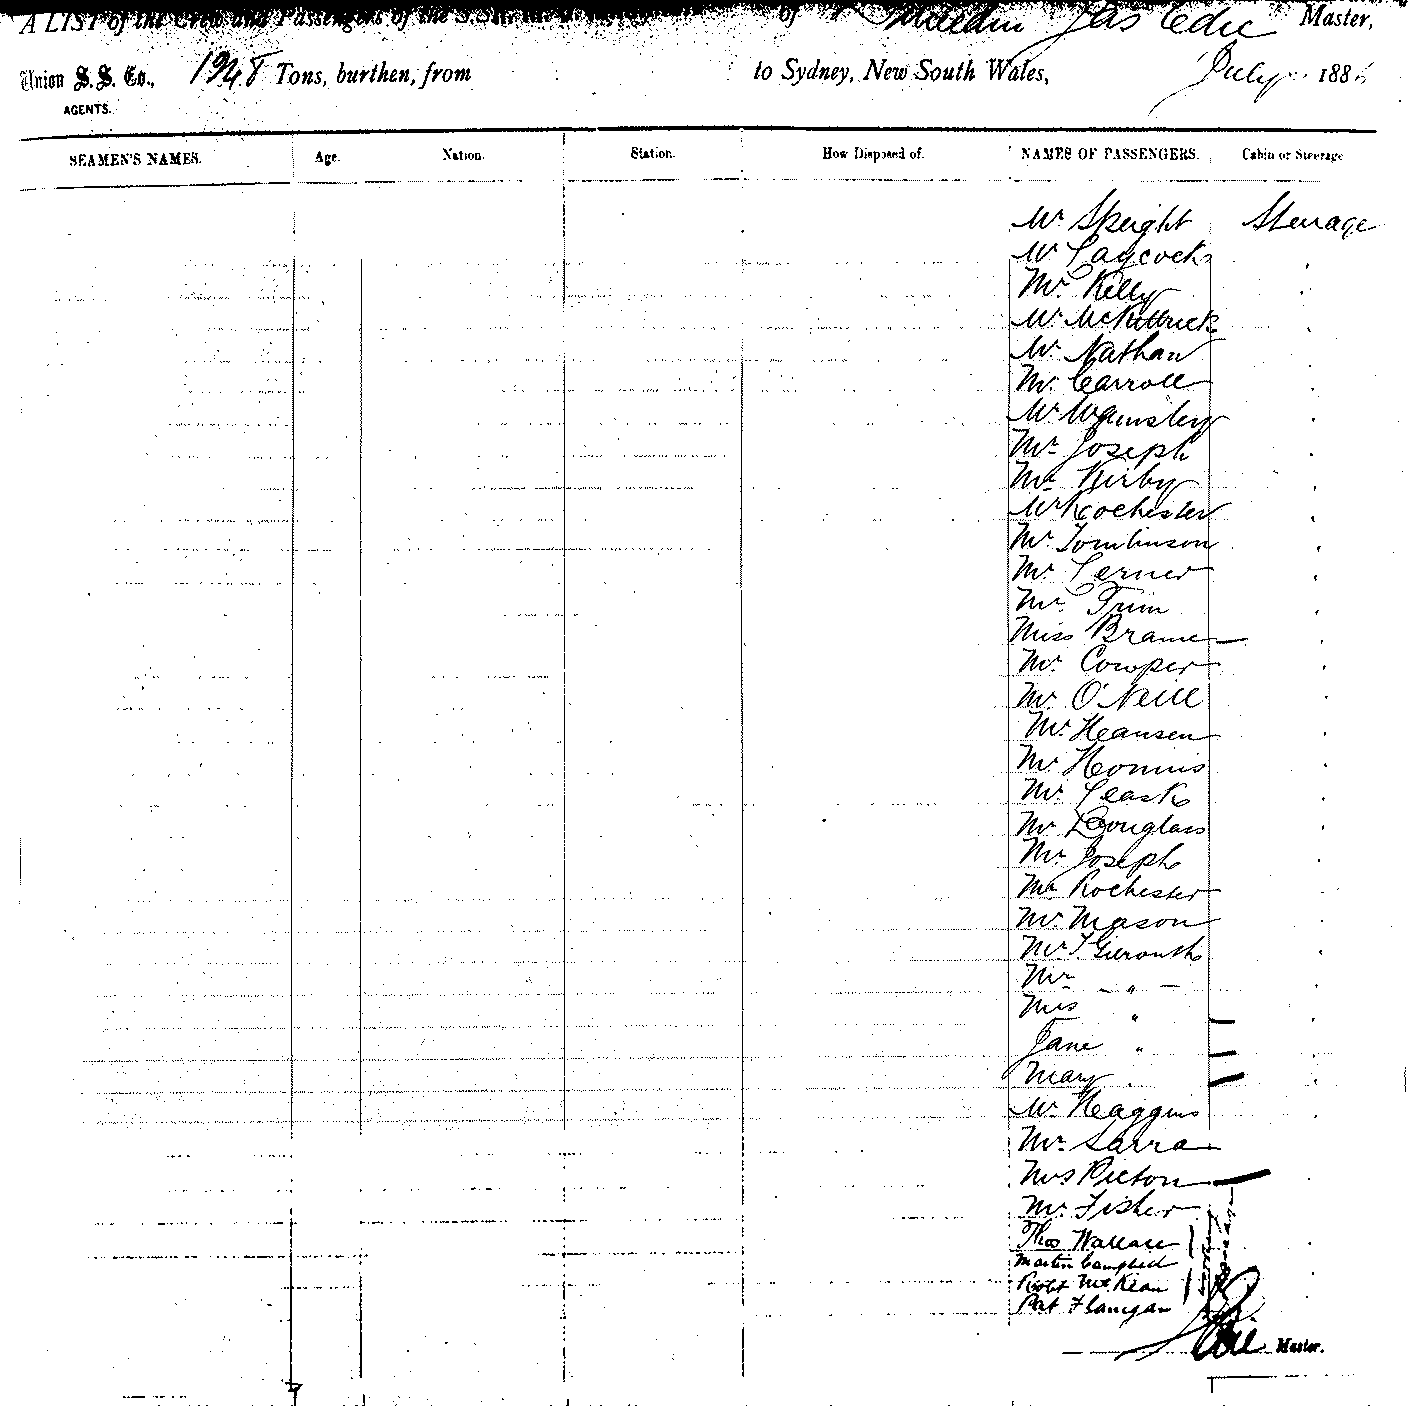 A LIST of the Crew and Passengers of the S.S. of Dunedin Jas Edie Master,
Union S. S. Co., 1948 Tons, burthen, from to Sydney, New South Wales, July 188
AGENTS.
SEAMEN'S NAMES. Age. Nation. Station. How Disposed of. NAMES OF PASSENGERS. Cabin or Steerage
Mr Speight Steerage
Mr Laycock
Mr Kelly
Mr McKittrick
Mr Nathan
Mr Carroll
Mr
Mr Joseph
Mr Kirby
Mr Rochester
Mr Tomlinson
Mr Lerner
Mr Trim
Miss Brame
Mr Cowper
Mr O'Neill
Mr Heansen
Mr
Mr Leask
Mr Douglass
Mr Joseph
Mr Rochester
Mr Mason
Mr T
Mr - " -
Mrs "
Jane "
Mary "
Mr Heaggins
Mr Sarra
Mrs Picton
Mr Fisher
Thos Wallace
Martin Campbell
Robt McKean
Pat Flanigan
Edie Master.